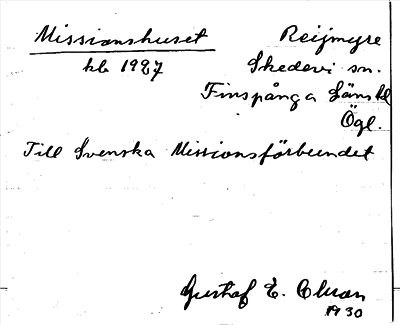 Missionshuset Reijmyre
kb 1927 Skedevi sn.
Finspånga Läns hd
Ögl.
Till Svenska Missionsförbundet
Gustaf E.
1930